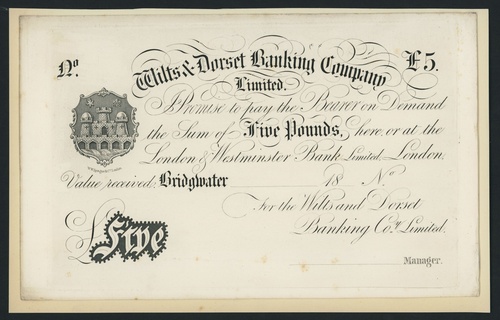 No.
Wilts & Dorset Banking Company
£5.
Limited.
I Promise to pay the Bearer on Demand
the Sum of Five Pounds, here, or at the
London & Westminster Bank Limited, London.
Value received, Bridgwater 18 No
For the Wilts and Dorset
Banking Coy. Limited.
£ Five
Manager.